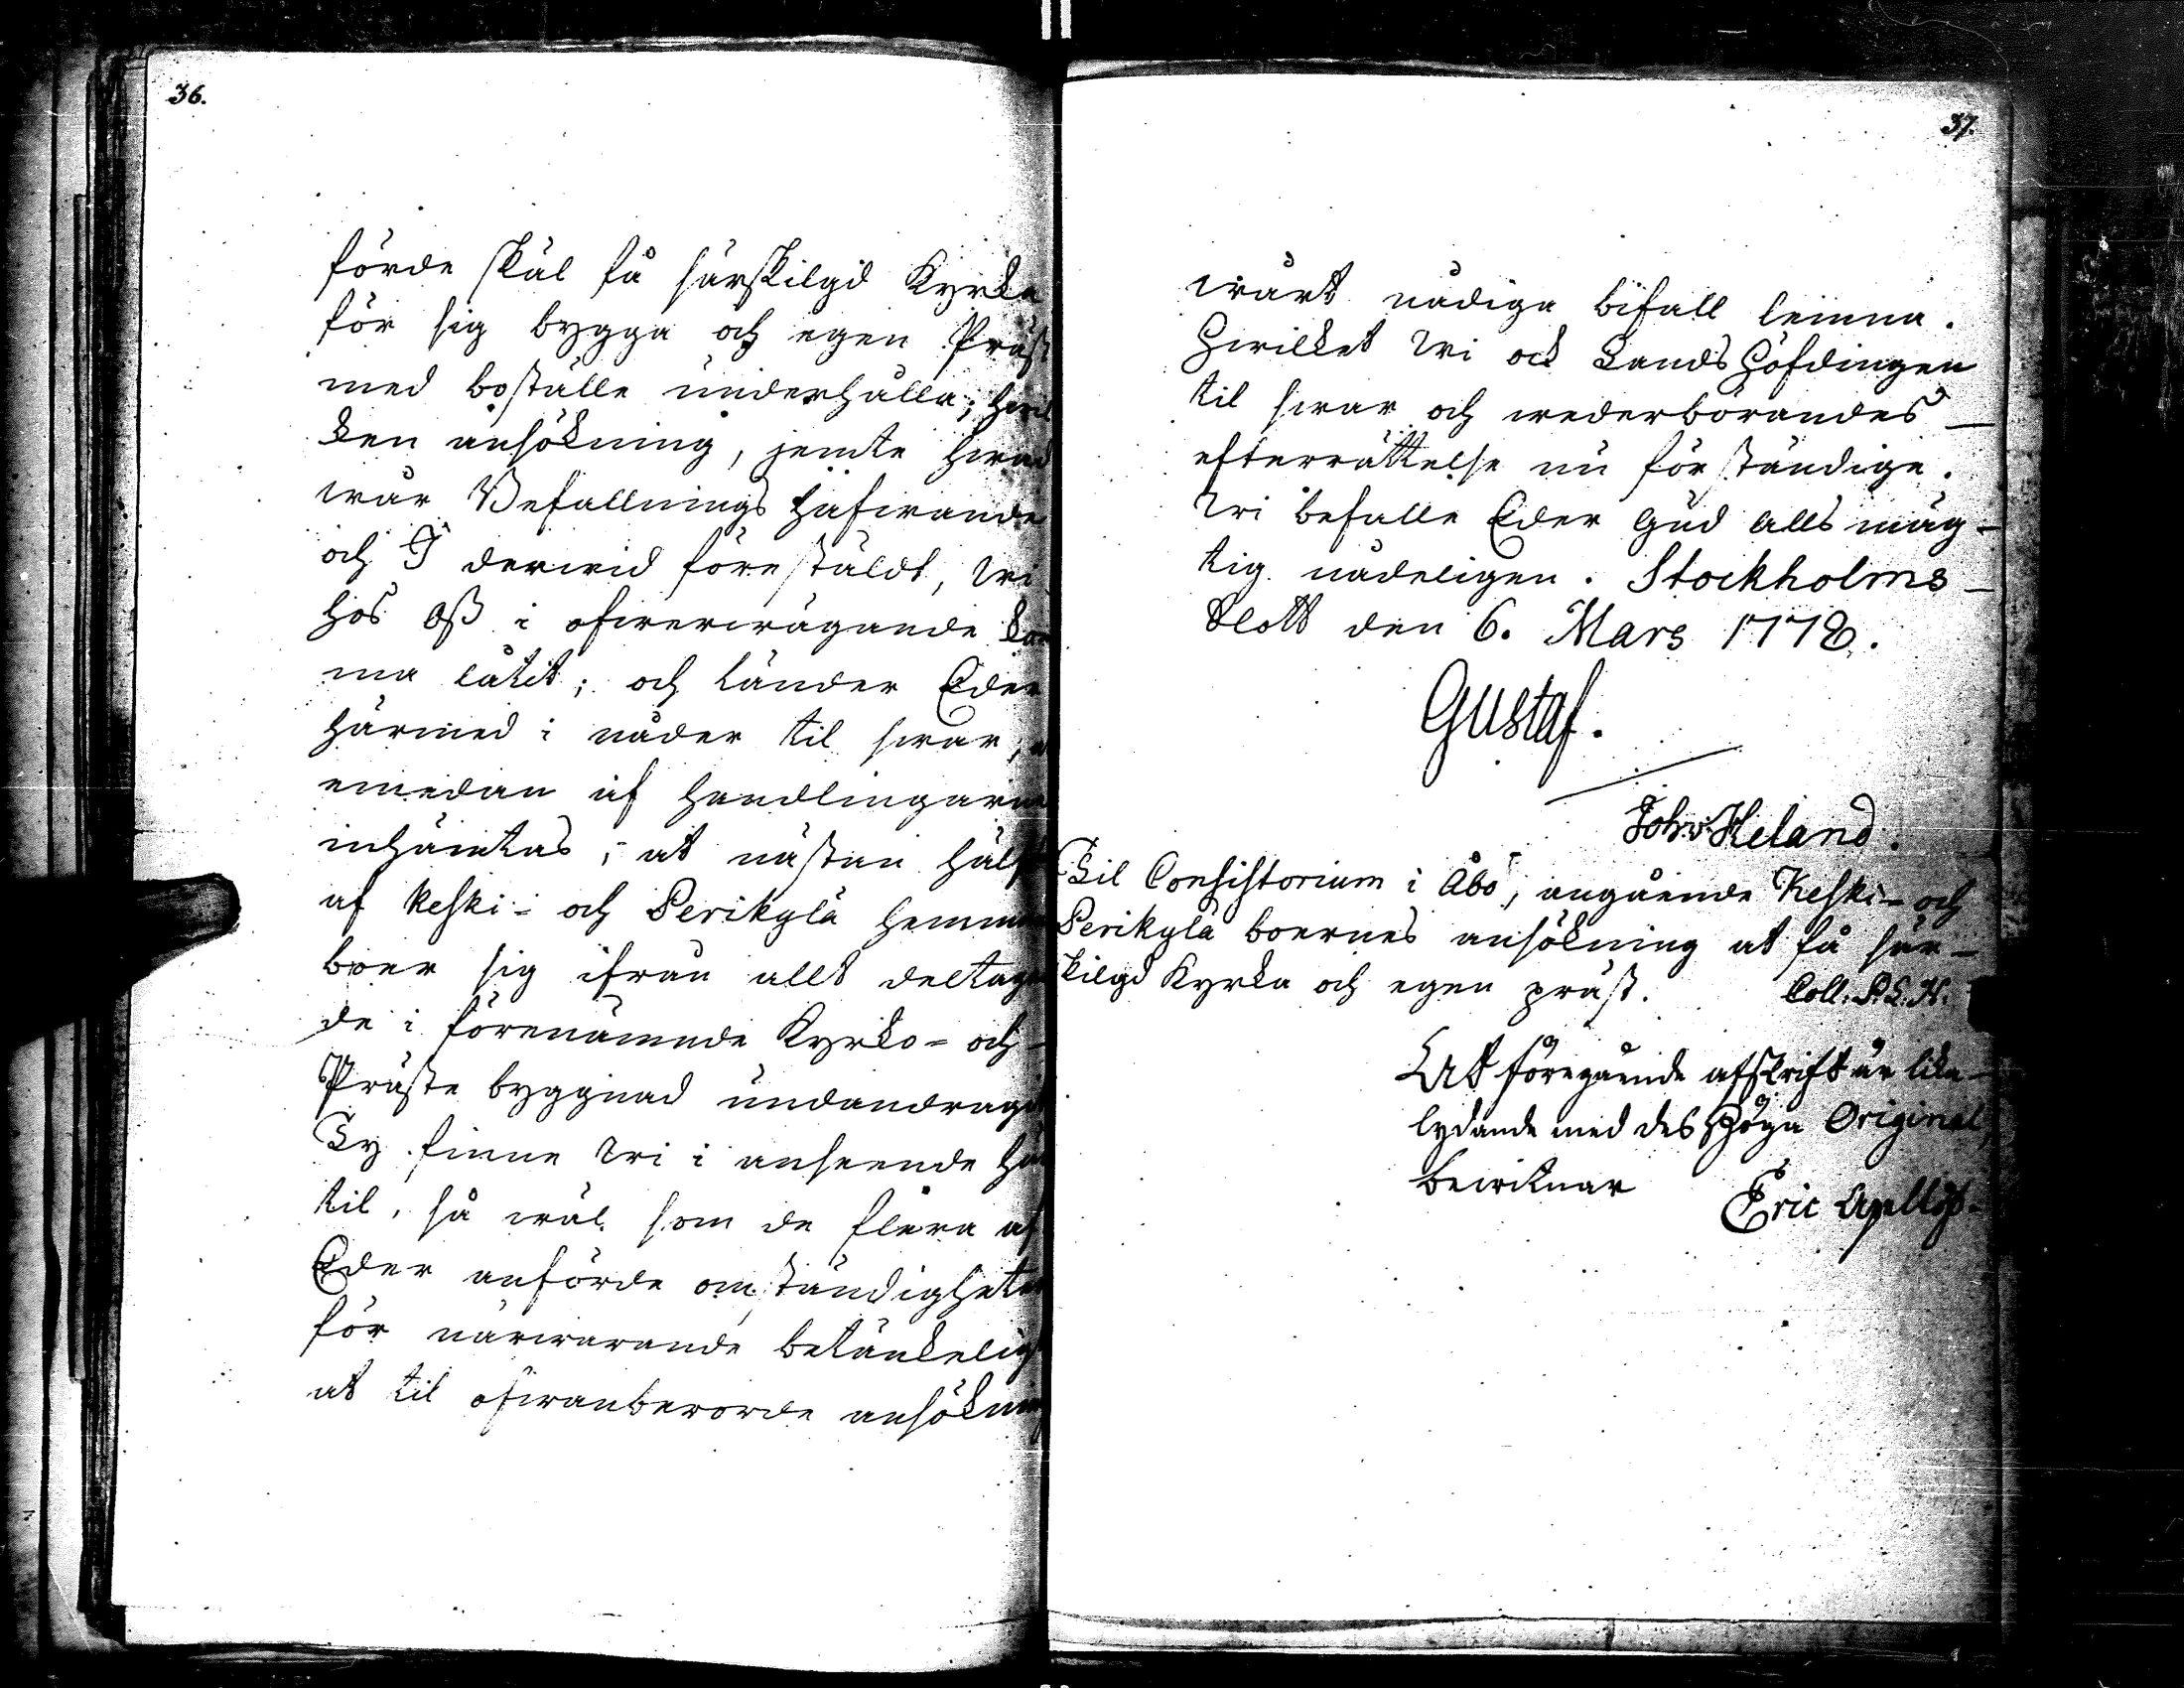 36.
förde skäl få särskilgd Kyrka
för sig bygga och egen Präst
med boställe underhålla; hwil
ken ansökning, jemte hwad
wår Befallnings hafwande
och I derwid förestäldt, Wi
hos Oss i öfwerwägande kom
ma låtit; och länder Eder
härmed i nåder til swar, at
emedan af handlingarne
inhämtas, at nästan hälf
af Keski- och Perikylä hemman
boer sig ifrån allt deltagan
de i förenämnde Kyrko- och
Präste byggnad undandragit
Ty finne Wi i anseende här
til, så wäl som de flera af
Eder anförde omständigheter
för närwarande betänkeligt
at til ofwanberorde ansökning
37.
wårt nådiga bifall lemna.
Hwilket Wi ock Lands Höfdingen
til swar och wederbörandes
efterrättelse nu förständige.
Wi befalle Eder Gud Alls mäg-
tig nådeligen. Stockholms
Slott den 6. Mars 1778.
Gustaf.
Joh. v. Heland.
Til Consistorium i Åbo, angående Keski- och
Perikylä boernes ansökning at få sär-
skilgd Kyrka och egen präst. Coll. P. L. H.
At föregående afskrift är lika
lydande med des Höga Original,
bewitnar Eric